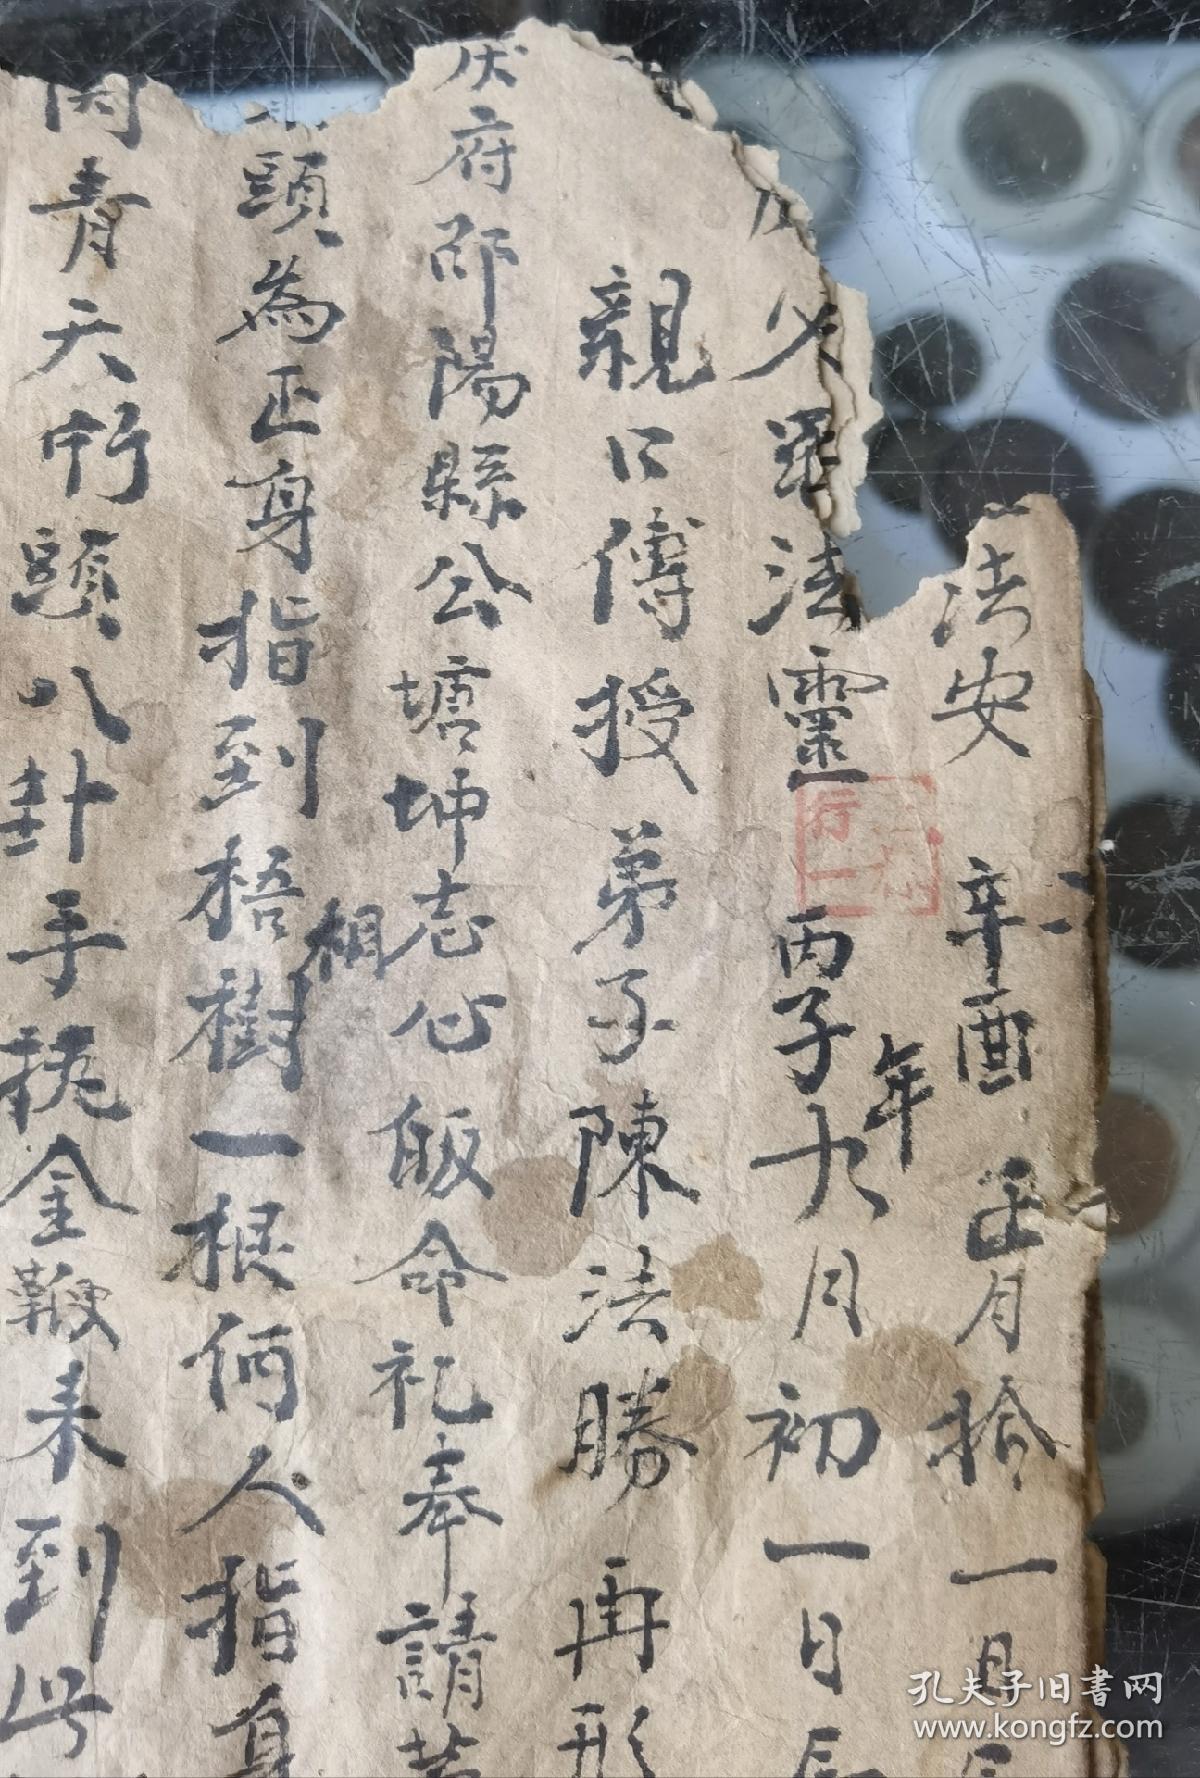 法安 辛酉 正月拾一日
法靈 丙子年九月初一日
親口傳授弟子陳法勝 再形
府邵陽縣公塘坤志心皈命礼奉請
頭為正身指到梧相樹一根何人指身
青天竹頭八卦手執金鞭来到
行一
孔夫子旧书网
www.kongfz.com